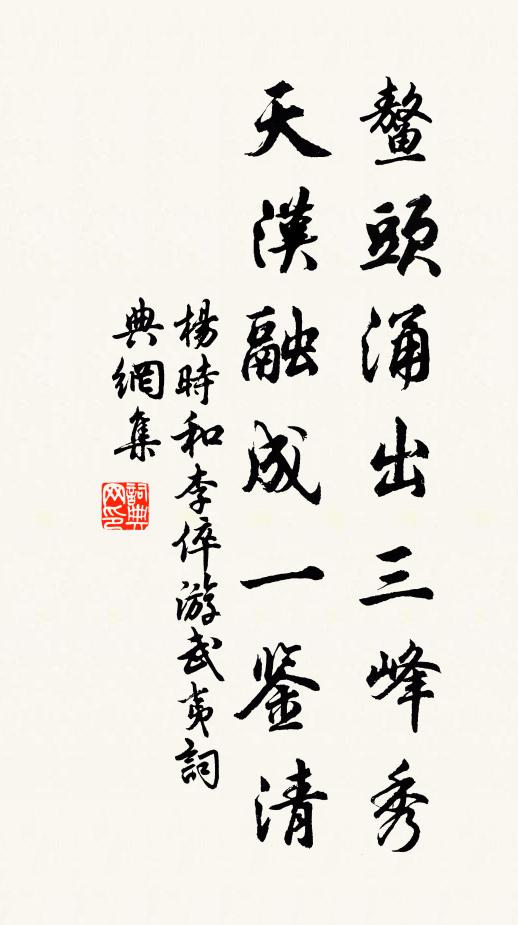 鰲頭涌出三峰秀
天漢融成一鉴清
楊時和李倅游武夷詞
典網集
詞典
网印